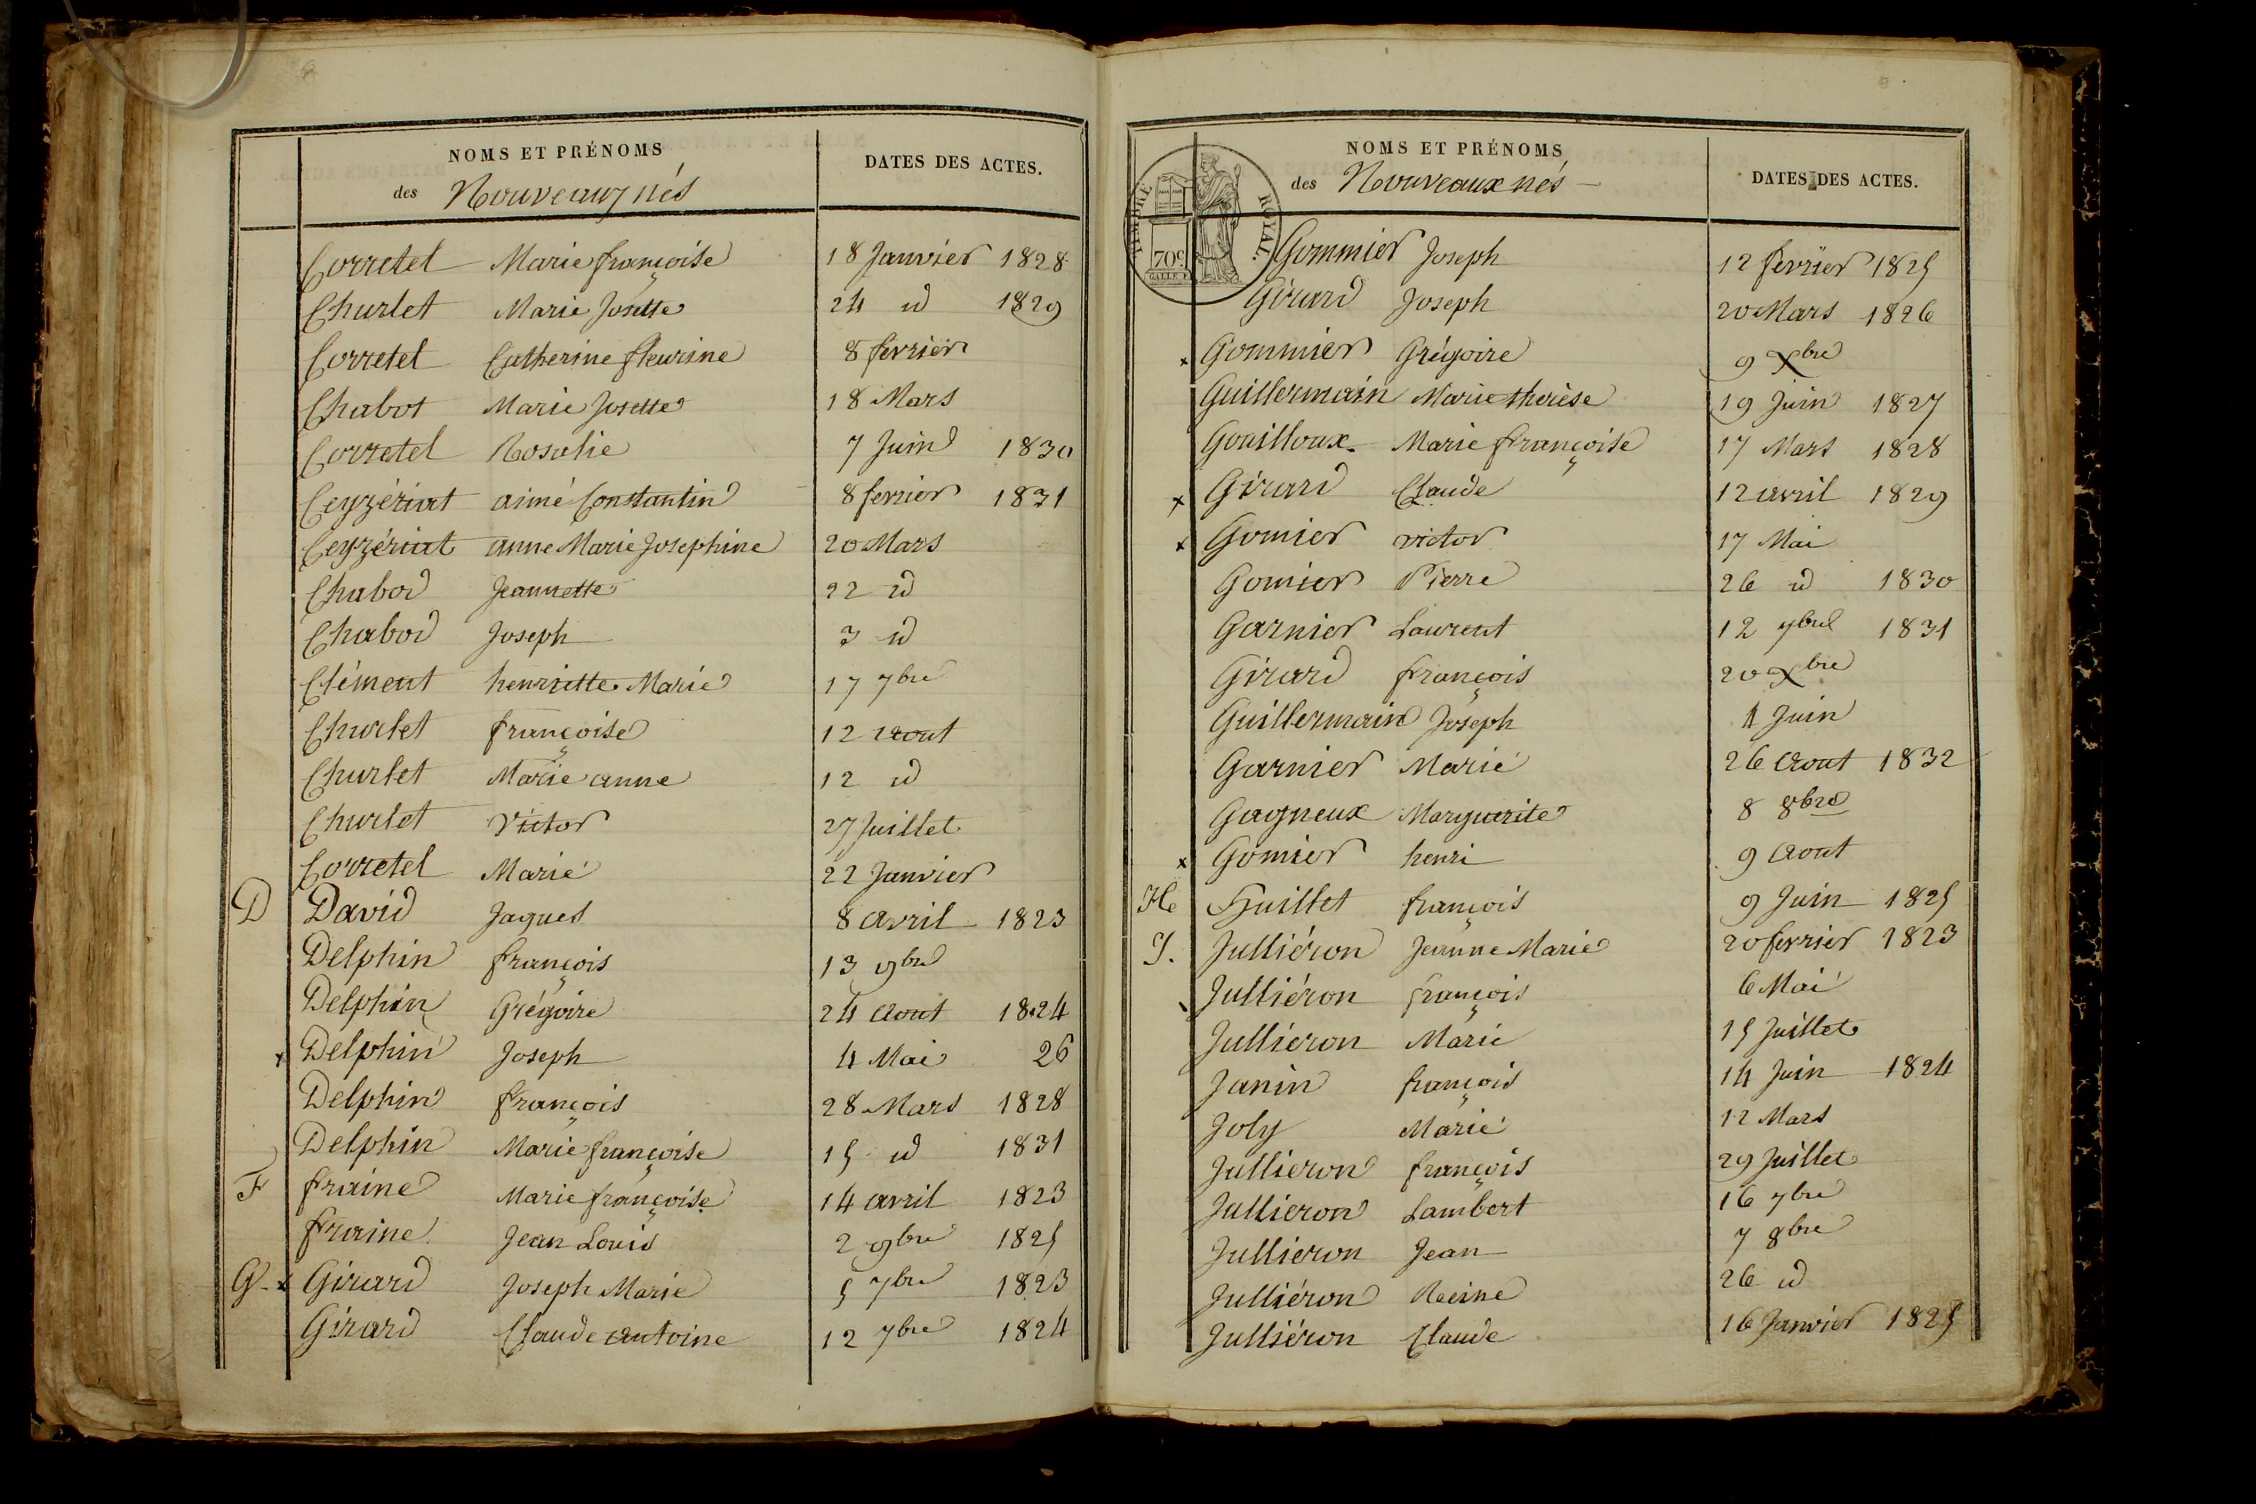 NOMS ET PRÉNOMS
des Nouveaux nés
DATES DES ACTES.
Corretel Marie françoise 18 Janvier 1828
Churlet Marie Josette 24 id 1829
Corretel Catherine fleurine 8 fevrier
Chabot Marie Josette 18 Mars
Corretel Rosalie 7 Juin 1830
Ceyzériat aimé Constantin 8 fevrier 1831
Ceyzériat anne Marie Josephine 20 Mars
Chabod Jeannette 22 id
Chabod Joseph 3 id
Clément henriette Marie 17 7bre
Churlet françoise 12 aout
Churlet Marie anne 12 id
Churlet Victor 27 Juillet
Corretel Marie 22 Janvier
D David Jaques 8 avril 1823
Delphin françois 13 9bre
Delphin Grégoire 24 aout 1824
x Delphin Joseph 4 Mai 26
Delphin françois 28 Mars 1828
Delphin Marie françoise 15 id 1831
F fraine Marie françoise 14 avril 1823
fraine Jean Louis 2 9bre 1825
G. x Girard Joseph Marie 5 7bre 1823
Girard Claude antoine 12 7bre 1824
NOMS ET PRÉNOMS
des Nouveaux nés
DATES DES ACTES.
TIMBRE ROYAL.
70c
Gommier Joseph 12 fevrier 1825
Girard Joseph 20 Mars 1826
x Gommier Grégoire 9 Xbre
Guillermain Marie therèse 19 Juin 1827
Gouilloux Marie françoise 17 Mars 1828
x Girard Claude 12 avril 1829
x Gomier victor 17 Mai
Gomier Pierre 26 id 1830
Garnier Laurent 12 7bre 1831
Girard françois 20 Xbre
Guillermain Joseph 1 Juin
Garnier Marie 26 aout 1832
Gagneux Marguerite 8 8bre
x Gomier henri 9 aout
H Huillet françois 9 Juin 1825
J. Julliéron Jeanne Marie 20 fevrier 1823
Julliéron françois 6 Mai
Julliéron Marie 15 Juillet
Janin françois 14 Juin 1824
Joly Marie 12 Mars
Jullieron françois 29 Juillet
Jullieron Lambert 16 7bre
Jullieron Jean 7 8bre
Julliéron Reine 26 id
Julliéron Claude 16 Janvier 1825